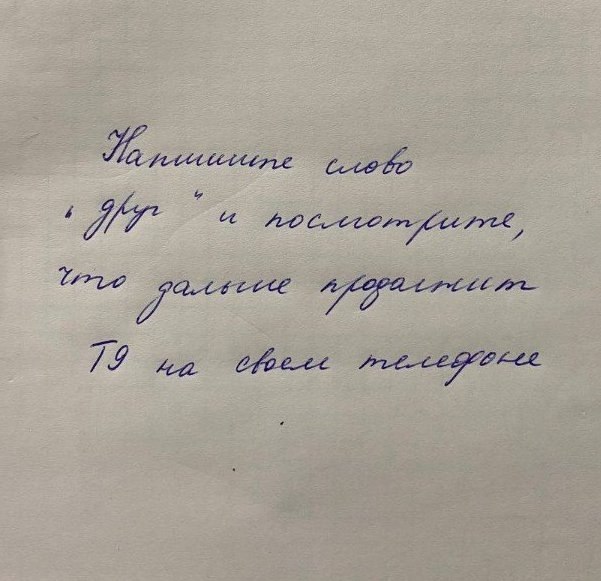 Напишите слово
"друг" и посмотрите,
что дальше продолжит
Т9 на своем телефоне